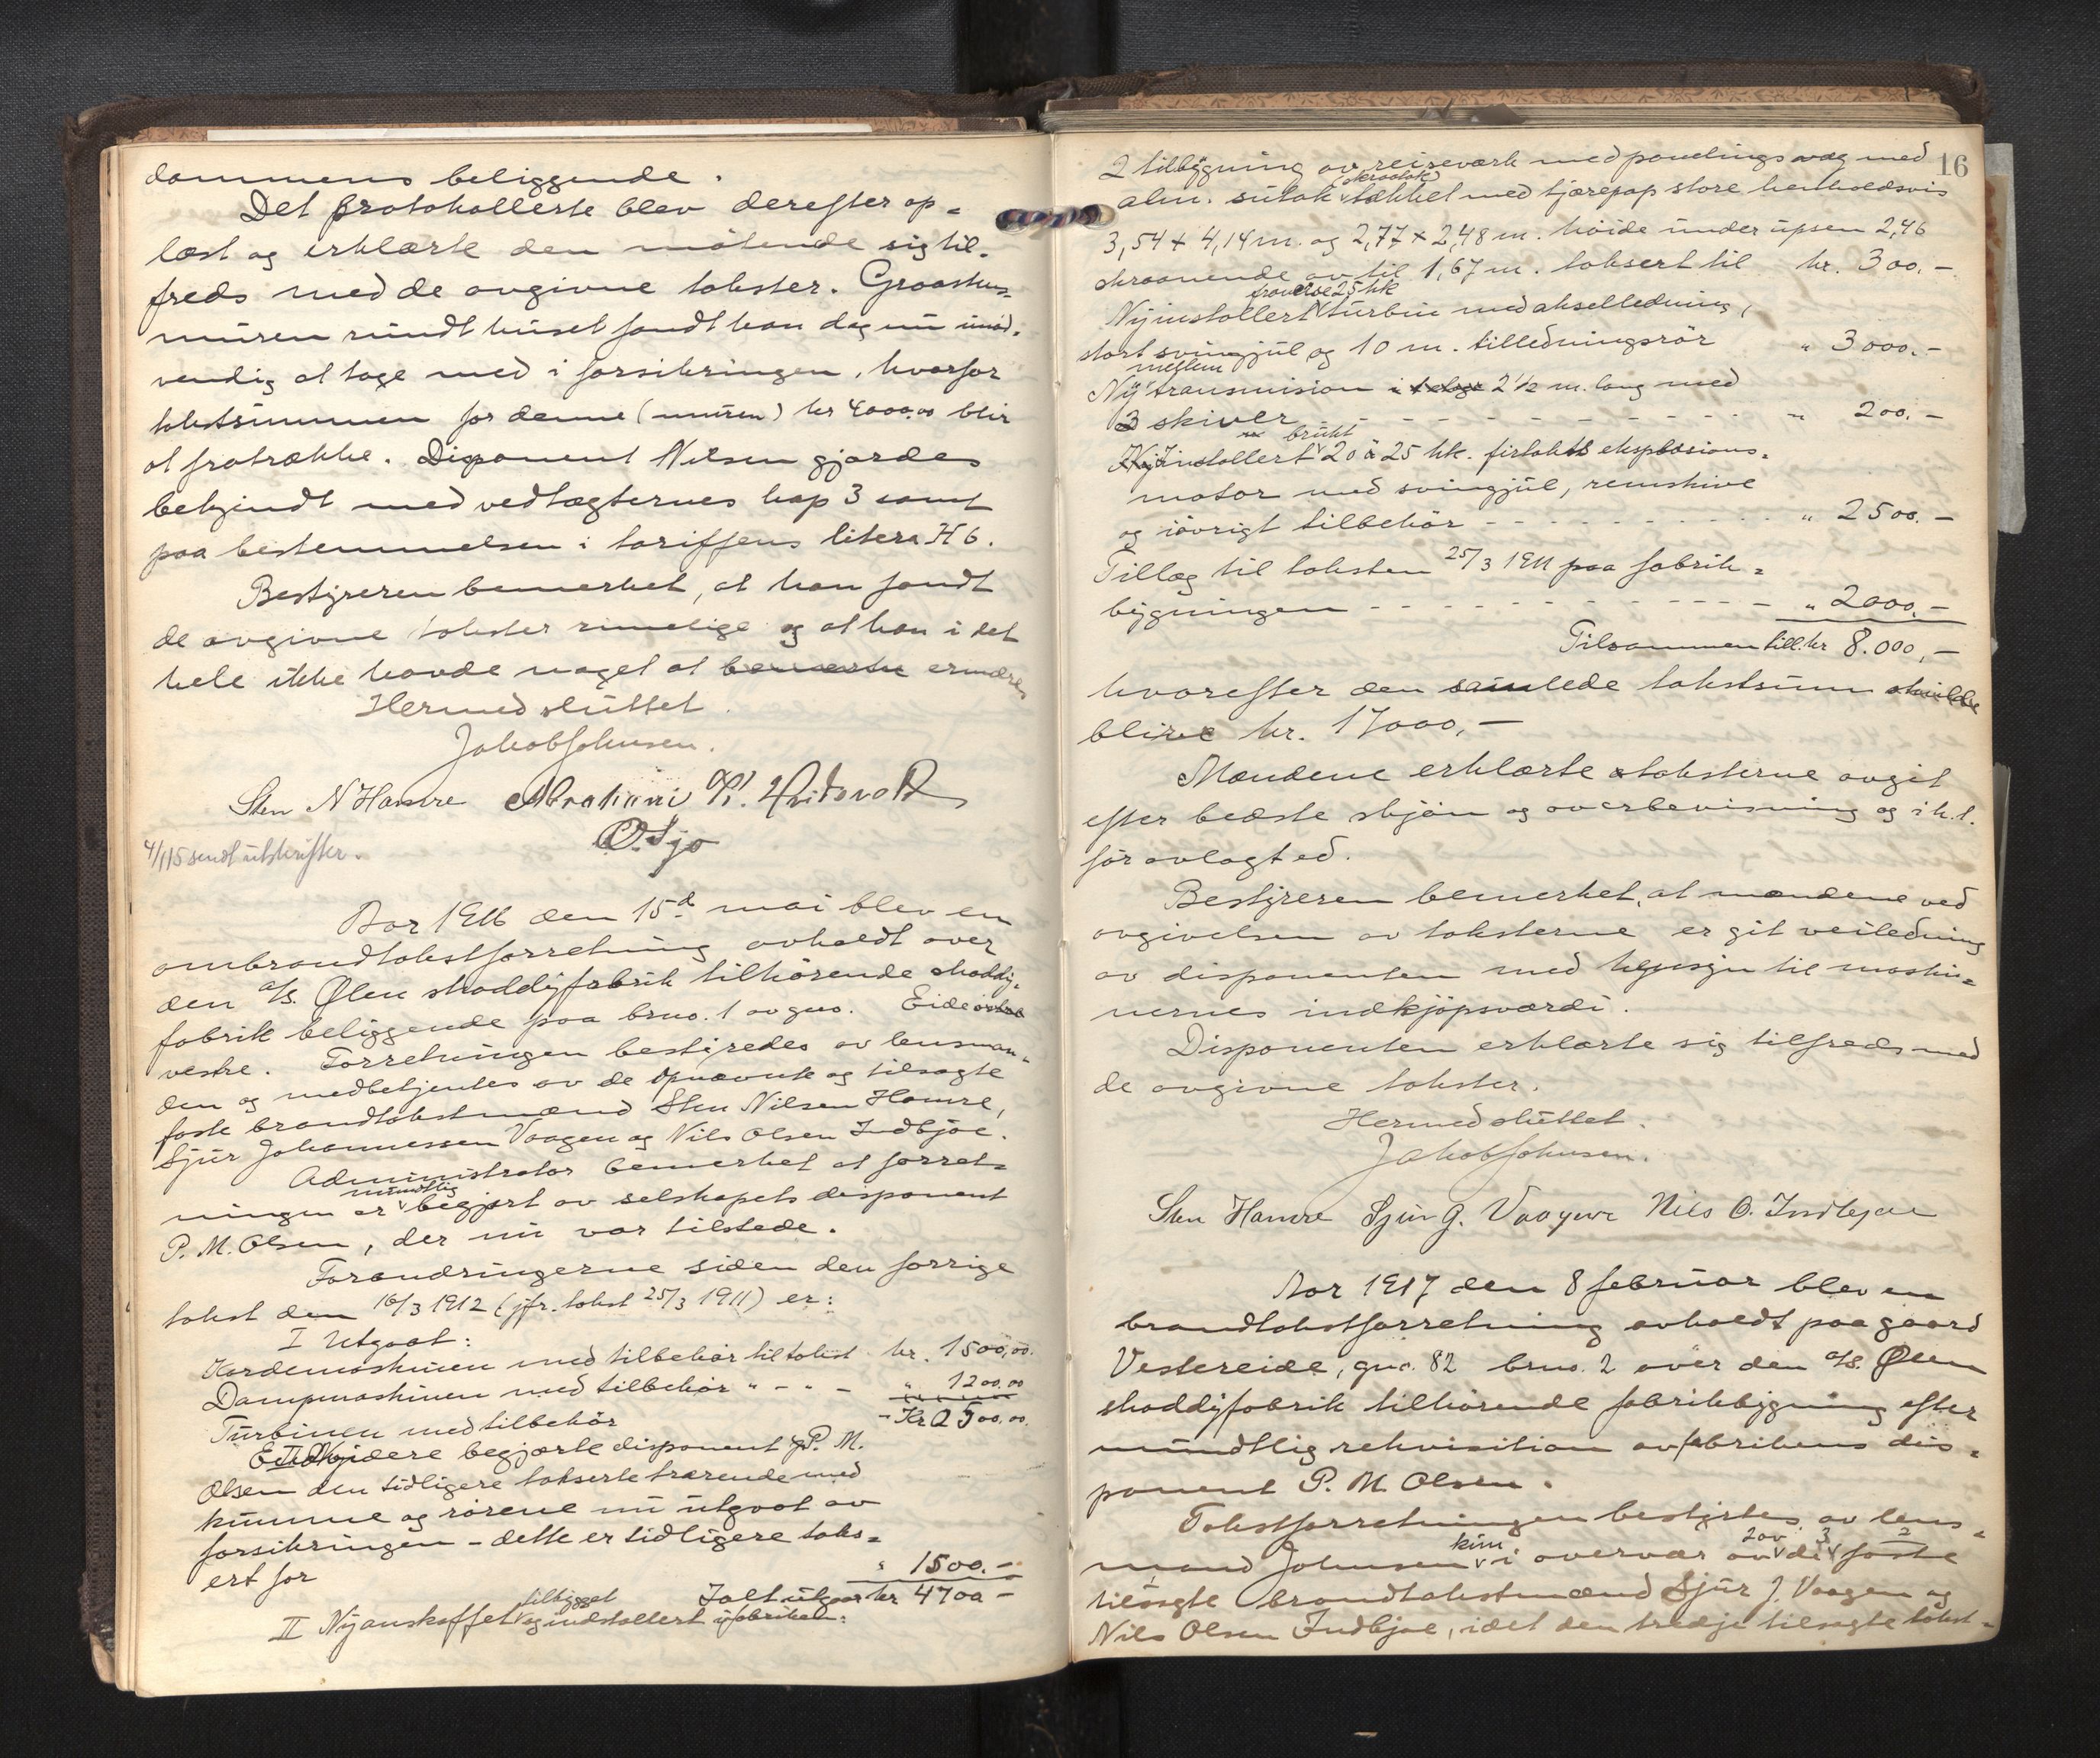 dammens beliggende.
Det protokollerte blev derefter op-
læst og erklærte den mötende sig til-
freds med de avgivne takster. Graastens-
muren rundt huset fandt han dog nu unöd-
vendig at tage med i forsikringen, hvorfor
takstsummen for denne (muren) kr 4000,00 blir
at fratrække. Disponent Nilsen gjordes
bekjendt med vedtægternes kap 3 samt
paa bestemmelsen i tariffens litera H 6.
Bestyreren bemerket, at han fandt
de avgivne takster rimelige og at han i det
hele ikke havde noget at bemerke erindre.
Hermed sluttet.
Jakob Johnsen.
Sten N Hamre Abraham H. Hvidsvold
O. Sjo
4/1 15 sendt utskrifter.
Aar 1916 den 15d mai blev en
ombrandtakstforretning avholdt over
den a/s. Ølen shoddyfabrik tilhörende shoddy-
fabrik beliggende paa brno. 1 av gno. Eide östre
vestre. Forretningen bestyredes av lensman-
den og medbetjentes av de opnævnte og tilsagte
faste brandtakstmænd Sten Nilsen Hamre,
Sjur Johannessen Vaagen og Nils Olsen Indbjoe.
Administrator bemerket at forret-
ningen er mundtlig begjært av selskapets disponent
P. M. Olsen, der nu var tilstede.
Forandringerne siden den forrige
takst den 16/3 1912 (jfr. takst 25/3 1911) er:
I Utgaat:
Kardemaskinen med tilbehör til takst kr. 1500,00.
Dampmaskinen med tilbehör " - " - " 1200,00
Turbinen med tilbehör - Kr 2500,00.
Endvidere begjærte disponent P. M.
Olsen den tidligere takserte trærende med
kumme og rörene nu utgaat av
forsikringen - dette er tidligere taks-
ert for " 1500.-
Ialt utgaar kr 4700 -
II Nyanskaffet tilbygget og indstallert i fabriken:
16
2 tilbygning av reiseverk med panelingsvæg med
alm. sutak skraatak tækket med tjærepap store henholdsvis
3,54 x 4,14 m. og 2,77 x 2,48 m. höide under upsen 2,46
skraanende av til 1,67 m. taksert til kr. 300.-
Nyinstallert francise 25 hk turbin med akselledning,
stort svingjul og 10 m. tilledningsrör " 3000.-
Ny mellem transmision i 2 1/2 m. lang med
3 skiver - - - - - - " 200.-
Nyinstallert brukt 20 à 25 hk. firtakts eksplosions-
motor med svingjul, remskive
og iövrigt tilbehör - - - - - - " 2500.-
Tillæg til taksten 25/3 1911 paa fabrik-
bygningen - - - - - - " 2000.-
Tilsammen till. kr 8.000,-
hvorefter den samlede takstsum skulde
blire kr. 17000,-
Mændene erklærte taksterne avgit
efter bedste skjön og overbevisning og i h.t.
för avlagt ed.
Bestyreren bemerket, at mændene ved
avgivelsen av taksterne er git veiledning
av disponenten med hensyn til maski-
nernes indkjöpsværdi.
Disponenten erklærte sig tilfreds med
de avgivne takster.
Hermed sluttet.
Jakob Johnsen.
Sten Hamre Sjur J. Vaagene Nils O. Indbjoe
Aar 1917 den 8 februar blev en
brandtakstforretning avholdt paa gaard
Vestereide, gno. 82 brno. 2 over den a/s. Ølen
shoddyfabrik tilhörende fabrikbygning efter
mundtlig rekvisition av fabrikens dis-
ponent P. M. Olsen.
Takstforretningen bestyrtes av lens-
mand Johnsen kun i overvær av 2 av de 3 faste
tilsagte brandtakstmænd Sjur J. Vaagen og
Nils Olsen Indbjoe, idet den tredje tilsagte takst-